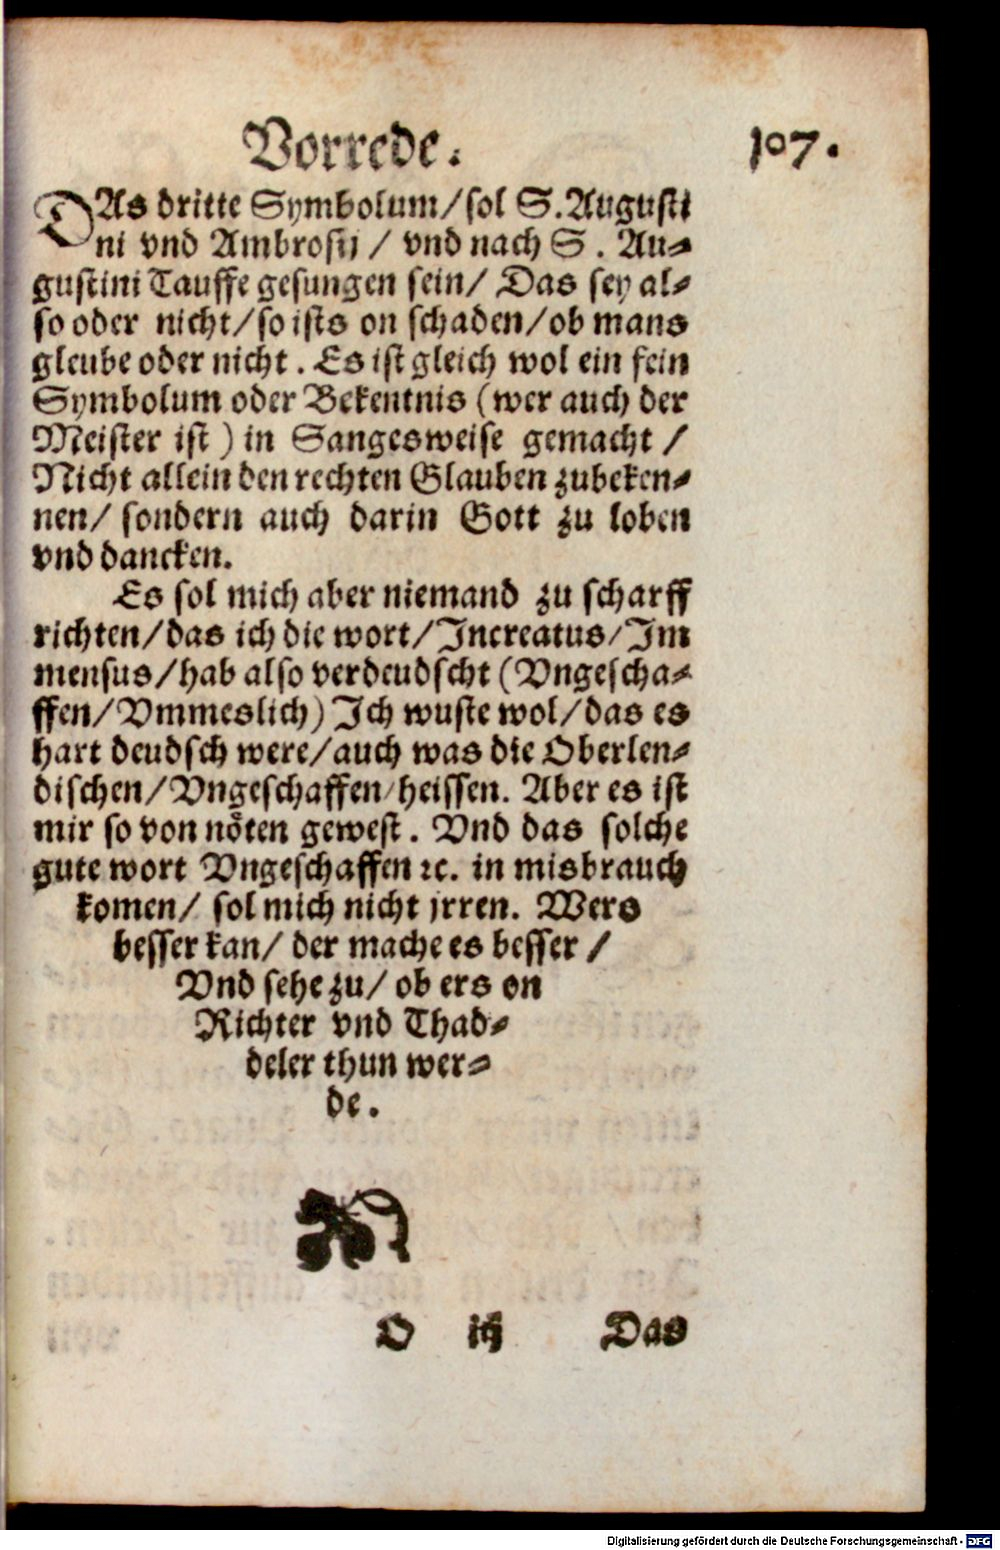 Vorrede. 107.
DAs dritte Symbolum/sol S. Augusti
ni vnd Ambrosij / vnd nach S. Au-
gustini Tauffe gesungen sein/ Das sey al-
so oder nicht/so ists on schaden/ob mans
gleube oder nicht. Es ist gleich wol ein fein
Symbolum oder Bekentnis (wer auch der
Meister ist) in Sangesweise gemacht /
Nicht allein den rechten Glauben zubeken-
nen/ sondern auch darin Gott zu loben
vnd dancken.
Es sol mich aber niemand zu scharff
richten/das ich die wort/Increatus/Im
mensus/hab also verdeudscht (Vngescha-
ffen/Vmmeslich) Ich wuste wol/das es
hart deudsch were/auch was die Oberlen-
dischen/Vngeschaffen/heissen. Aber es ist
mir so von nöten gewest. Vnd das solche
gute wort Vngeschaffen ꝛc. in misbrauch
komen/ sol mich nicht jrren. Wers
besser kan/ der mache es besser /
Vnd sehe zu/ ob ers on
Richter vnd Thad-
deler thun wer-
de.
O iij Das
Digitalisierung gefördert durch die Deutsche Forschungsgemeinschaft - DFG